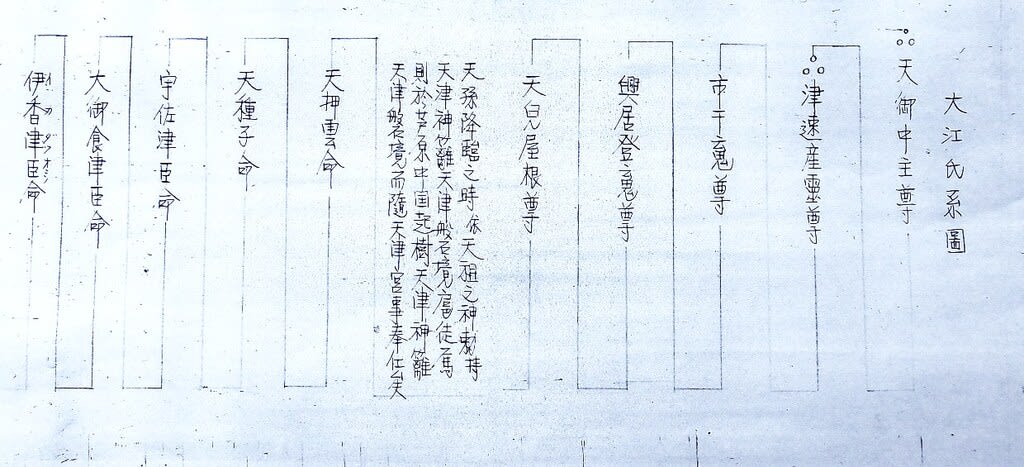 大江氏系圖
天御中主尊
津速産靈尊
市千魂尊
興居登魂尊
天兒屋根尊
天孫降臨之時依天祖之神勅持
天津神籬天津磐境扈従焉
則於芦原中国起樹天津神籬
天津磐境而隨天津宮事奉仕矣
天押雲命
天種子命
宇佐津臣命
大御食津臣命
伊香津臣命